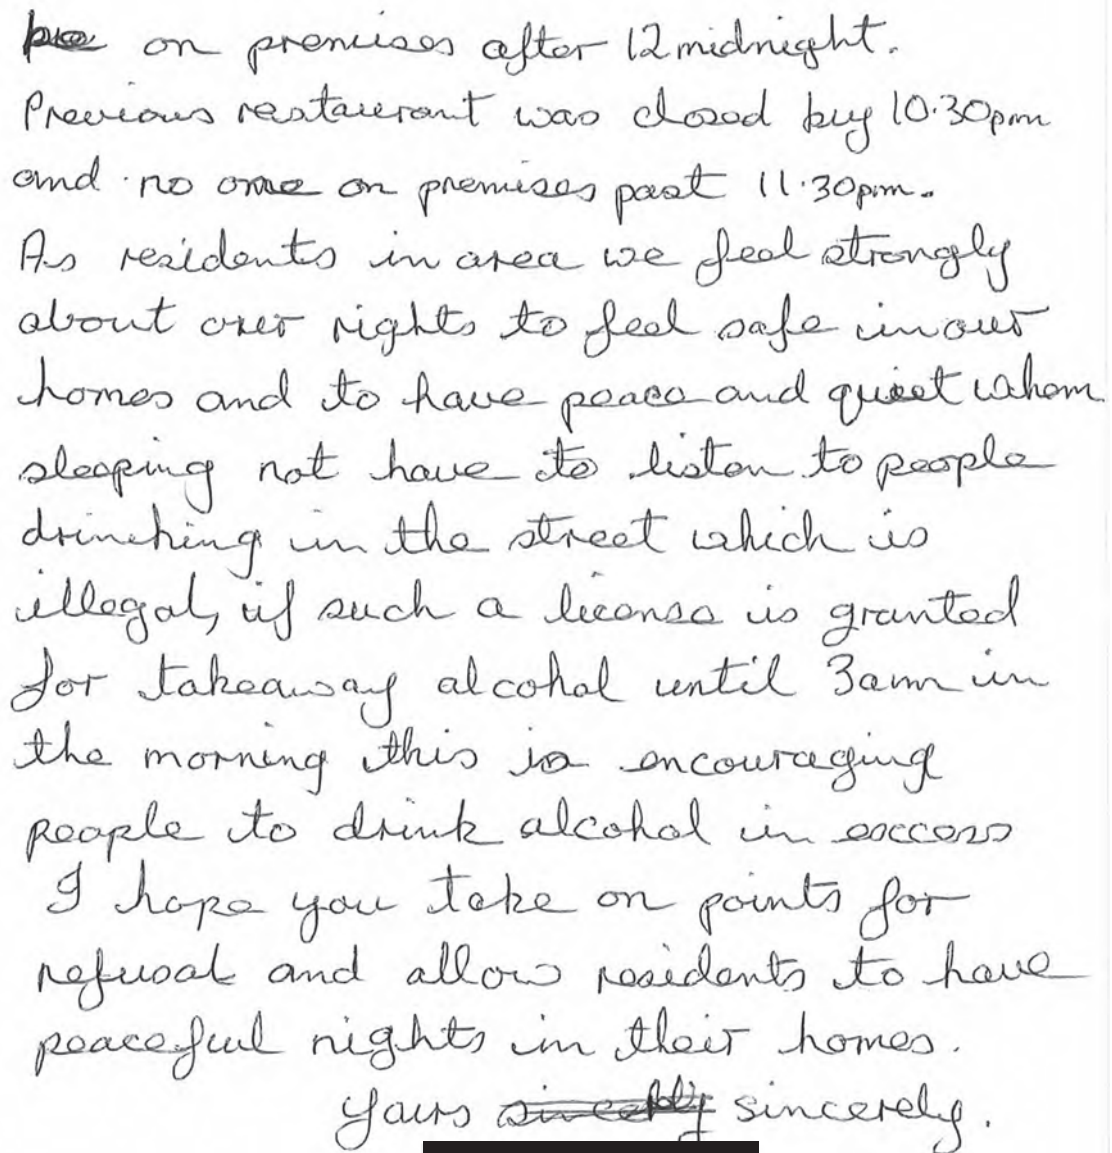 on premises after 12 midnight.
Previous restaurant was closed buy 10.30pm
and no one on premises past 11.30pm.
As residents in area we feel strongly
about our rights to feel safe in our
homes and to have peace and quiet when
sleeping not have to listen to people
drinking in the street which is
illegal, if such a license is granted
for takeaway alcohol until 3am in
the morning this is encouraging
people to drink alcohol in excess
I hope you take on points for
refusal and allow residents to have
peaceful nights in their homes.
Yours sincerely.